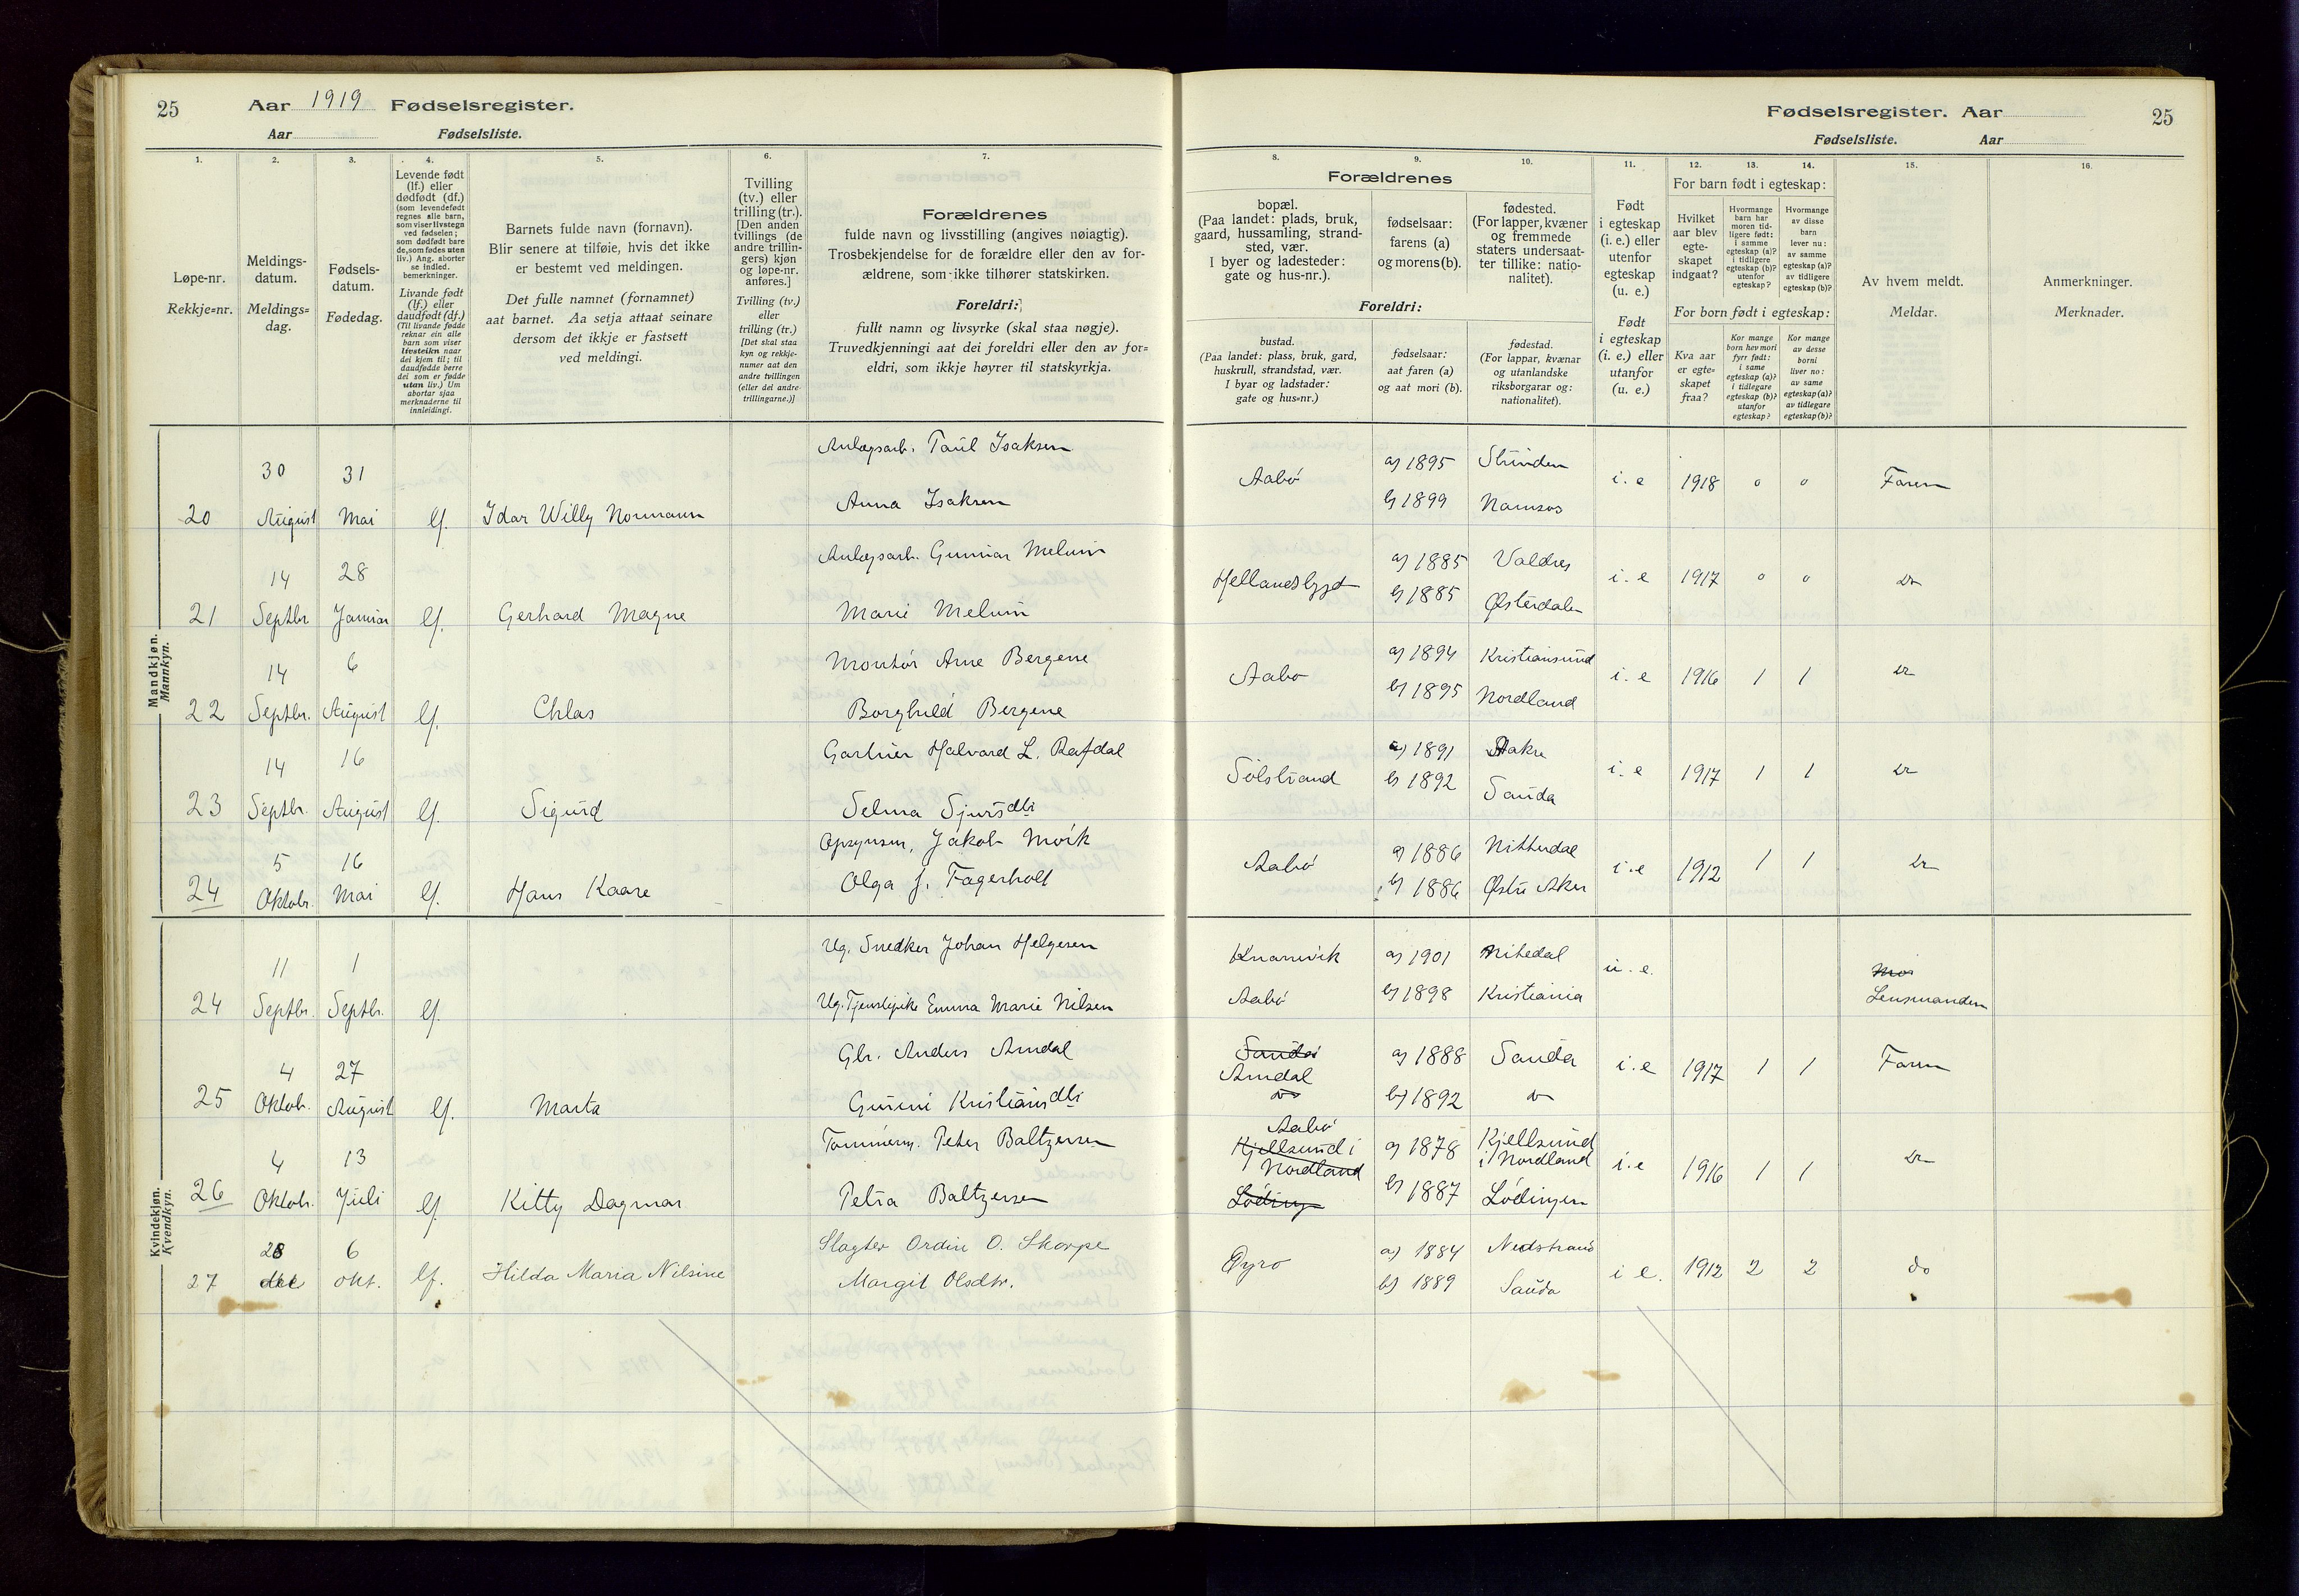 25 Aar 1919 Fødselsregister.
Aar Fødselsliste.
1.
Løpe-nr.
Rekkje=nr.
2.
Meldings-
datum.
Meldings=
dag.
3.
Fødsels-
datum.
Fødedag.
4.
Levende født
(lf.) eller
dødfødt (df.)
(som levendefødt
regnes alle barn,
som viser livstegn
ved fødselen;
som dødfødt bare
de, som fødes uten
liv.) Ang. aborter
se indled.
bemerkninger.
Livande født
(lf.) eller
daudfødt (df.)
(Til livande fødde
reknar ein alle
barn som viser
livsteikn naar
dei kjem til; til
daudfødde berre
dei som er fødde
utan liv.) Um
abortar sjaa
merknaderne til
innleidingi.
5.
Barnets fulde navn (fornavn).
Blir senere at tilføie, hvis det ikke
er bestemt ved meldingen.
Det fulle namnet (fornamnet)
aat barnet. Aa setja attaat seinare
dersom det ikkje er fastsett
ved meldingi.
6.
Tvilling
(tv.) eller
trilling (tr.).
[Den anden
tvillings (de
andre trillin-
gers) kjøn
og løpe-nr.
anføres.]
Tvilling (tv.)
eller
trilling (tr.)
[Det skal staa
kyn og rekkje-
numer aat den
andre tvillingen
(eller dei andre
trillingarne.)]
7.
Forældrenes
fulde navn og livsstilling (angives nøiagtig).
Trosbekjendelse for de forældre eller den av for-
ældrene, som ikke tilhører statskirken.
Foreldri:
fullt namn og livsyrke (skal staa nøgje).
Truvedkjenningi aat dei foreldri eller den av for=
eldri, som ikkje høyrer til statskyrkja.
Fødselsregister. Aar 25
Fødselsliste. Aar
Forældrenes
8.
bopæl.
(Paa landet: plads, bruk,
gaard, hussamling, strand-
sted, vær.
I byer og ladesteder:
gate og hus-nr.).
9.
fødselsaar:
farens (a)
og morens (b).
10.
fødested.
(For lapper, kvæner
og fremmede
staters undersaat-
ter tillike: natio-
nalitet).
Foreldri:
bustad.
(Paa landet: plass, bruk, gard,
huskrull, strandstad, vær.
I byar og ladstader:
gate og hus=nr.)
fødselsaar:
aat faren (a)
og aat mori (b).
fødestad.
(For lappar, kvænar
og utanlandske
riksborgarar og:
nationalitet).
11.
Født
i egteskap
(i. e.) eller
utenfor
egteskap
(u. e.)
Født
i egteskap
(i. e.) eller
utanfor
(u. e.)
12. 13. 14.
For barn født i egteskap:
Hvilket
aar blev
egte-
skapet
indgaat?
Hvormange
barn har
moren tid-
ligere født:
i samme
egteskap (a)?
i tidligere
egteskap (b)?
utenfor
egteskap?
Hvormange
av disse
barn
lever nu:
av samme
egteskap (a)?
av tidligere
egteskap (b)?
For born født i egteskap:
Kva aar
er egte=
skapet
fraa?
Kor mange
born hev mori
fyrr født:
i same
egteskap (a)?
i tidlegare
egteskap (b)?
utanfor
egteskap?
Kor mange
av desse
borni
liver no:
av same
egteskap (a)?
av tidlegare
egteskap (b)?
15.
Av hvem meldt.
Meldar.
16.
Anmerkninger.
Merknader.
Mandkjøn.
Mannkyn.
30 31 Anlægsarb. Paul Isaksen Aabø a) 1895 Strinden i. e 1918 0 0 Faren
20 August Mai lf. Idar Willy Normann Anna Isaksen b) 1899 Namsos
14 28 Anlægsarb. Gunnar Melum Hellandsbygd a) 1885 Valdres i. e 1917 0 0 do
21 Septbr Januar lf. Gerhard Magne Marie Melum b) 1885 Østerdalen
14 6 Montør Arne Bergene Aabø a) 1894 Kristiansund i. e 1916 1 1 do
22 Septbr. August lf. Chlas Borghild Bergene b) 1895 Nordland
14 16 Gartner Halvard L. Rafdal Solstrand a) 1891 Aakre i. e 1917 1 1 do
23 Septbr. August lf. Sigurd Selma Sjursdtr b) 1892 Sauda
5 16 Opsynsm. Jakob Moik Aabø a) 1886 Nittedal i. e 1912 1 1 do
24 Oktobr. Mai lf. Hans Kaare Olga J. Fagerholt b) 1886 Østre Aker
Kvindekjøn.
Kvendkyn.
11 1 Ug. Snedker Johan Helgesen Knarrvik a) 1901 Nitedal u. e. Mor
24 Septbr. Septbr. lf. Ug. Tjenestepike Emma Marie Nilsen Aabø b) 1898 Kristiania Lensmanden
4 27 Gbr. Anders Amdal Sauda Amdal a) 1888 Sauda i. e 1917 1 1 Faren
25 Oktob. August lf. Marta Gurine Kristiansdtr do b) 1892 do
4 13 Tømmerm. Peter Baltzersen Aabø Kjellsund i Nordland a) 1878 Kjellsund i Nordland i. e 1916 1 1 do
26 Oktob. Juli lf. Kitty Dagmar Petra Baltzersen Løding b) 1887 Lødingen
28 6 Slagter Ordin O. Skorpe Øyro a) 1884 Nedstrand i e. 1912 2 2 do
27 okt. lf. Hilda Maria Nilsine Margit Olsdtr. b) 1889 Sauda